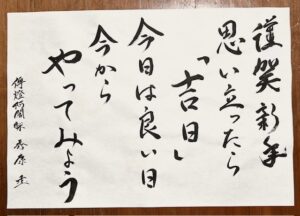 謹賀新年
思い立ったら
「吉日」
今日は良い日
今から
やってみよう